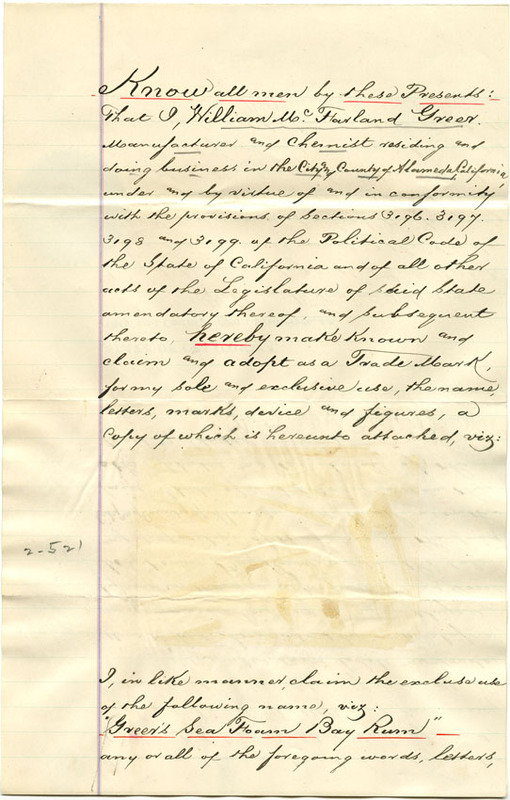 Know all men by these Presents:
That I, William Mc Farland Greer.
Manufacturer and Chemist residing and
doing business in the City & County of Alameda, California,
under and by virtue of and in conformity
with the provisions of Sections 3196. 3197.
3198 and 3199. of the Political Code of
the State of California and of all other
acts of the Legislature of said State
amendatory thereof, and subsequent
thereto, hereby make known and
claim and adopt as a Trade Mark,
for my sole and exclusive use, the name,
letters, marks, device and figures, a
Copy of which is hereunto attached, viz:
2-521
I, in like manner, claim the excluse use
of the following name, viz:
"Greer's Sea Foam Bay Rum"
any or all of the foregoing words, letters,